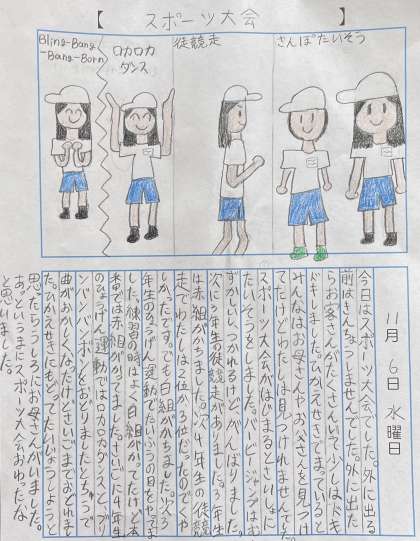 【 スポーツ大会 】
Bling-Bang-
-Bang-Born
ロカロカ
ダンス
徒競走
さんぽたいそう
11月6日水曜日
今日はスポーツ大会でした。外に出る
前はきんちょうしませんでした。外に出た
らお客さんがたくさんいて少しはドキ
ドキしました。ひかえせきでまっていると
みんなはお母さんやお父さんを見つけ
てたけどわたしは見つけれませんでした。
スポーツ大会がはじまるとさいしょに
たいそうをしました。バービージャンプはむ
ずかしいしつかれるけど、がんばりました。
次に3年生の徒競走がありました。3年生
は赤組がかちました。次4年生の徒競
走でわたしは2位か3位だったのでくや
しかったです。でも白組がかちました。次3
年生のひょうげん運動でたいふうの目をやってま
した。練習の時はよく白組がかってたけど本
番では赤組がかってました。さいごに4年生
のひょうげん運動ではロカロカダンスとブリ
ンバンバンボンをおどりましたとちゅうで
曲がおかしくなったけどさいごまでおどれまし
た。ひかえせきにもどってたいじょうしようと
思たらうしろにお母さんがいました。
あっというまにスポーツ大会おわったな
と思いました。